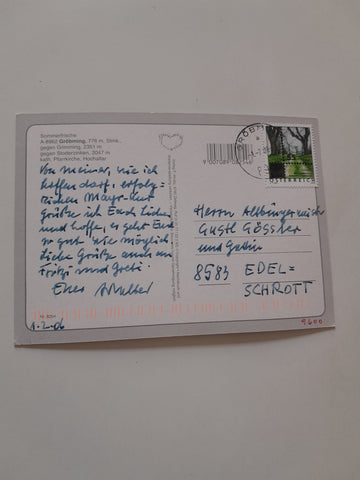 Sommerfrische
A-8962 Gröbming, 776 m, Stmk.,
gegen Grimming, 2351 m
gegen Stoderzinken, 2047 m
kath. Pfarrkirche, Hochaltar
Von meiner, wie ich
hoffen darf, erfolg=
reichen Mayr-Kur
Grüße ich Euch, Lieber
und hoffe, es geht Euch
so gut wie möglich.
Liebe Grüße auch an
und Greti.
Euer
1.2.06
9 007089
GRÖBM
55
ÖSTERREICH
Herrn Altbürgermeister
Gustl Gössler
und Gattin
8583 EDEL=
SCHROTT
9600